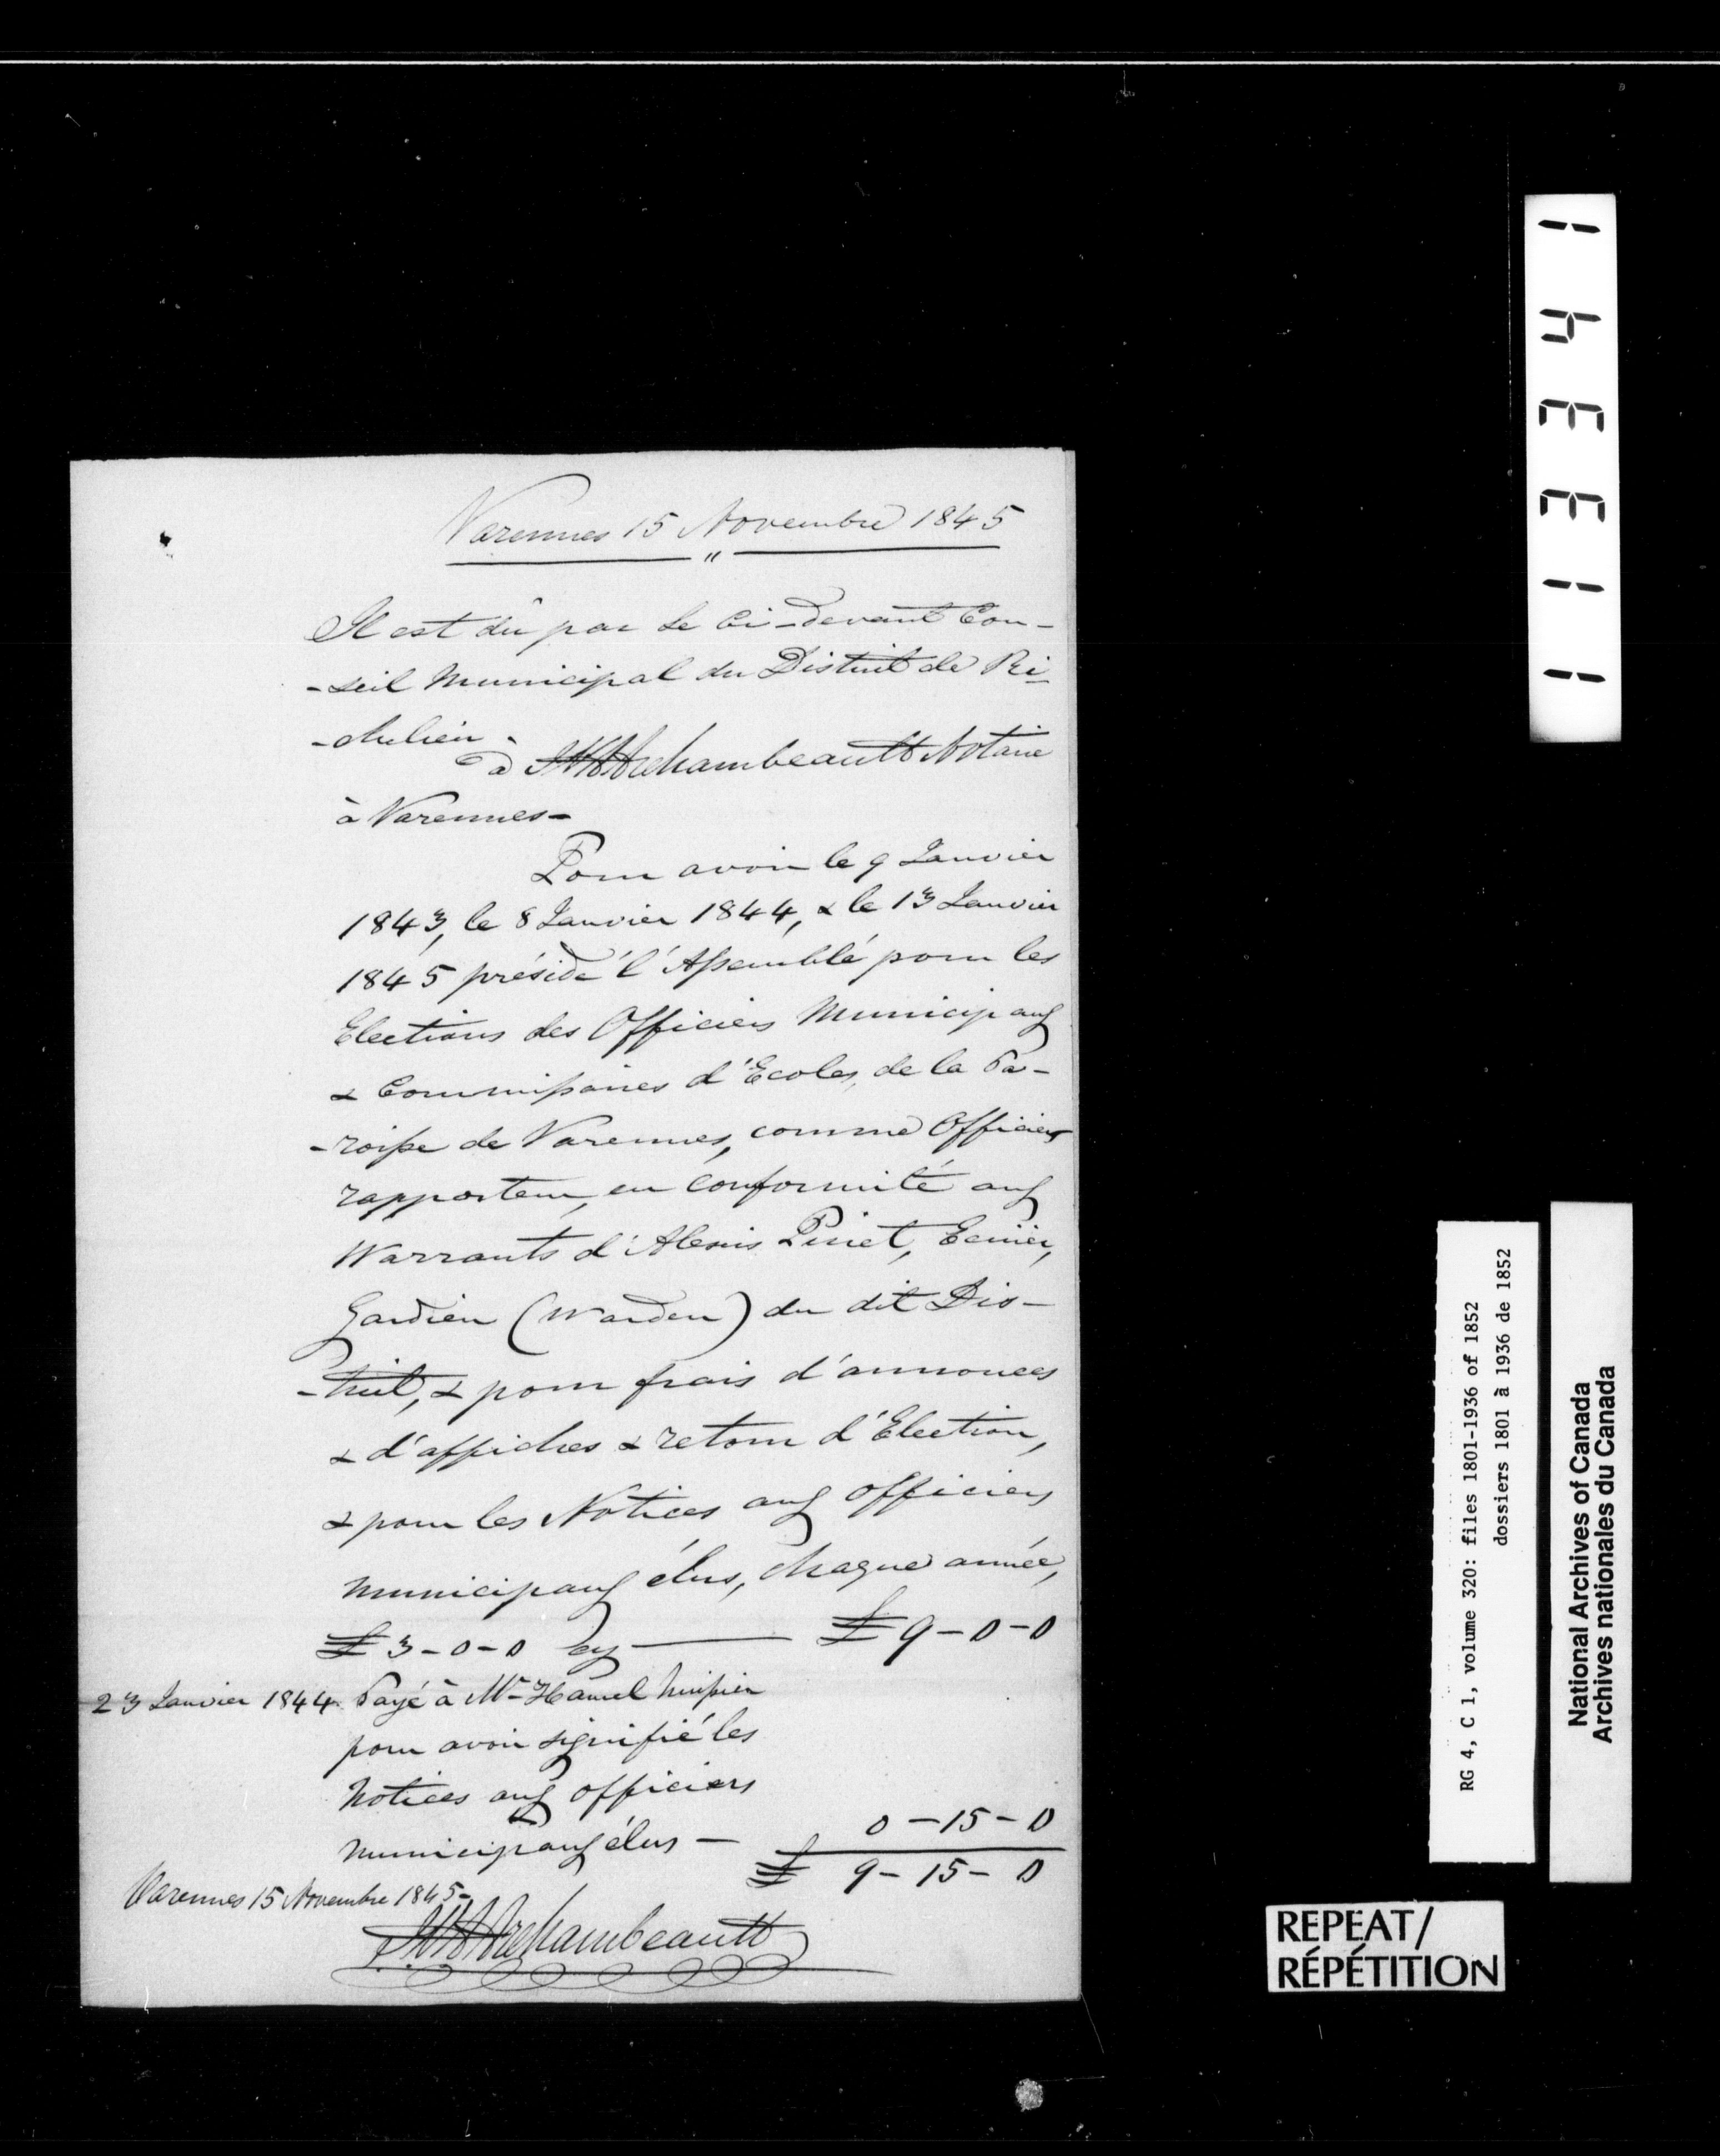 Varennes 15 Novembre 1845
"
Il est dû par le Ci-devant Con-
-seil Municipal du District de Ri-
-chelieu.
à JN A Archambeault Notaire
à Varennes-
Pour avoir le 9 Janvier
1843, le 8 Janvier 1844, & le 13 Janvier
1845 présidé l'Assemblé pour les
Elections des Officiers Municipaux
& Commissaires d'Ecoles, de la Pa-
-roisse de Varennes, comme Officier
rapporteur, en Conformité aux
Warrants d'Alexis Pinet, Ecuier,
Gardien (Warden) du dit Dis-
-trict, & pour frais d'annonces
& d'affiches & retour d'Election,
& pour les Notices aux officiers
municipaux élus, chaque année,
£ 3-0-0 cy — £ 9-0-0
23 Janvier 1844. Payé à Mr Hamel huissier
pour avoir signifié les
notices aux officiers
municipaux élus — 0-15-0
£ 9-15-0
Varennes 15 Novembre 1845-
JN A Archambeault
113341
RG 4, C 1, volume 320: files 1801-1936 of 1852
dossiers 1801 à 1936 de 1852
National Archives of Canada
Archives nationales du Canada
REPEAT/
RÉPÉTITION